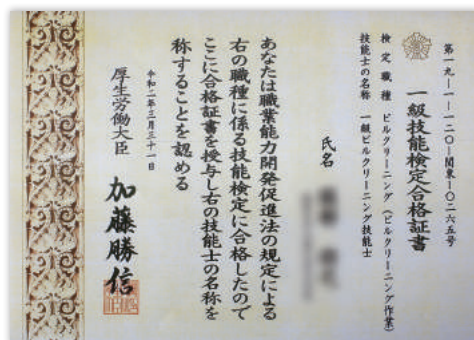 第一九-一-一二〇-関東-〇二六五号
一級技能検定合格証書
検定職種 ビルクリーニング(ビルクリーニング作業)
技能士の名称 一級ビルクリーニング技能士
氏名
あなたは職業能力開発促進法の規定による
右の職種に係る技能検定に合格したので
ここに合格証書を授与し右の技能士の名称を
称することを認める
令和二年三月三十一日
厚生労働大臣 加藤勝信